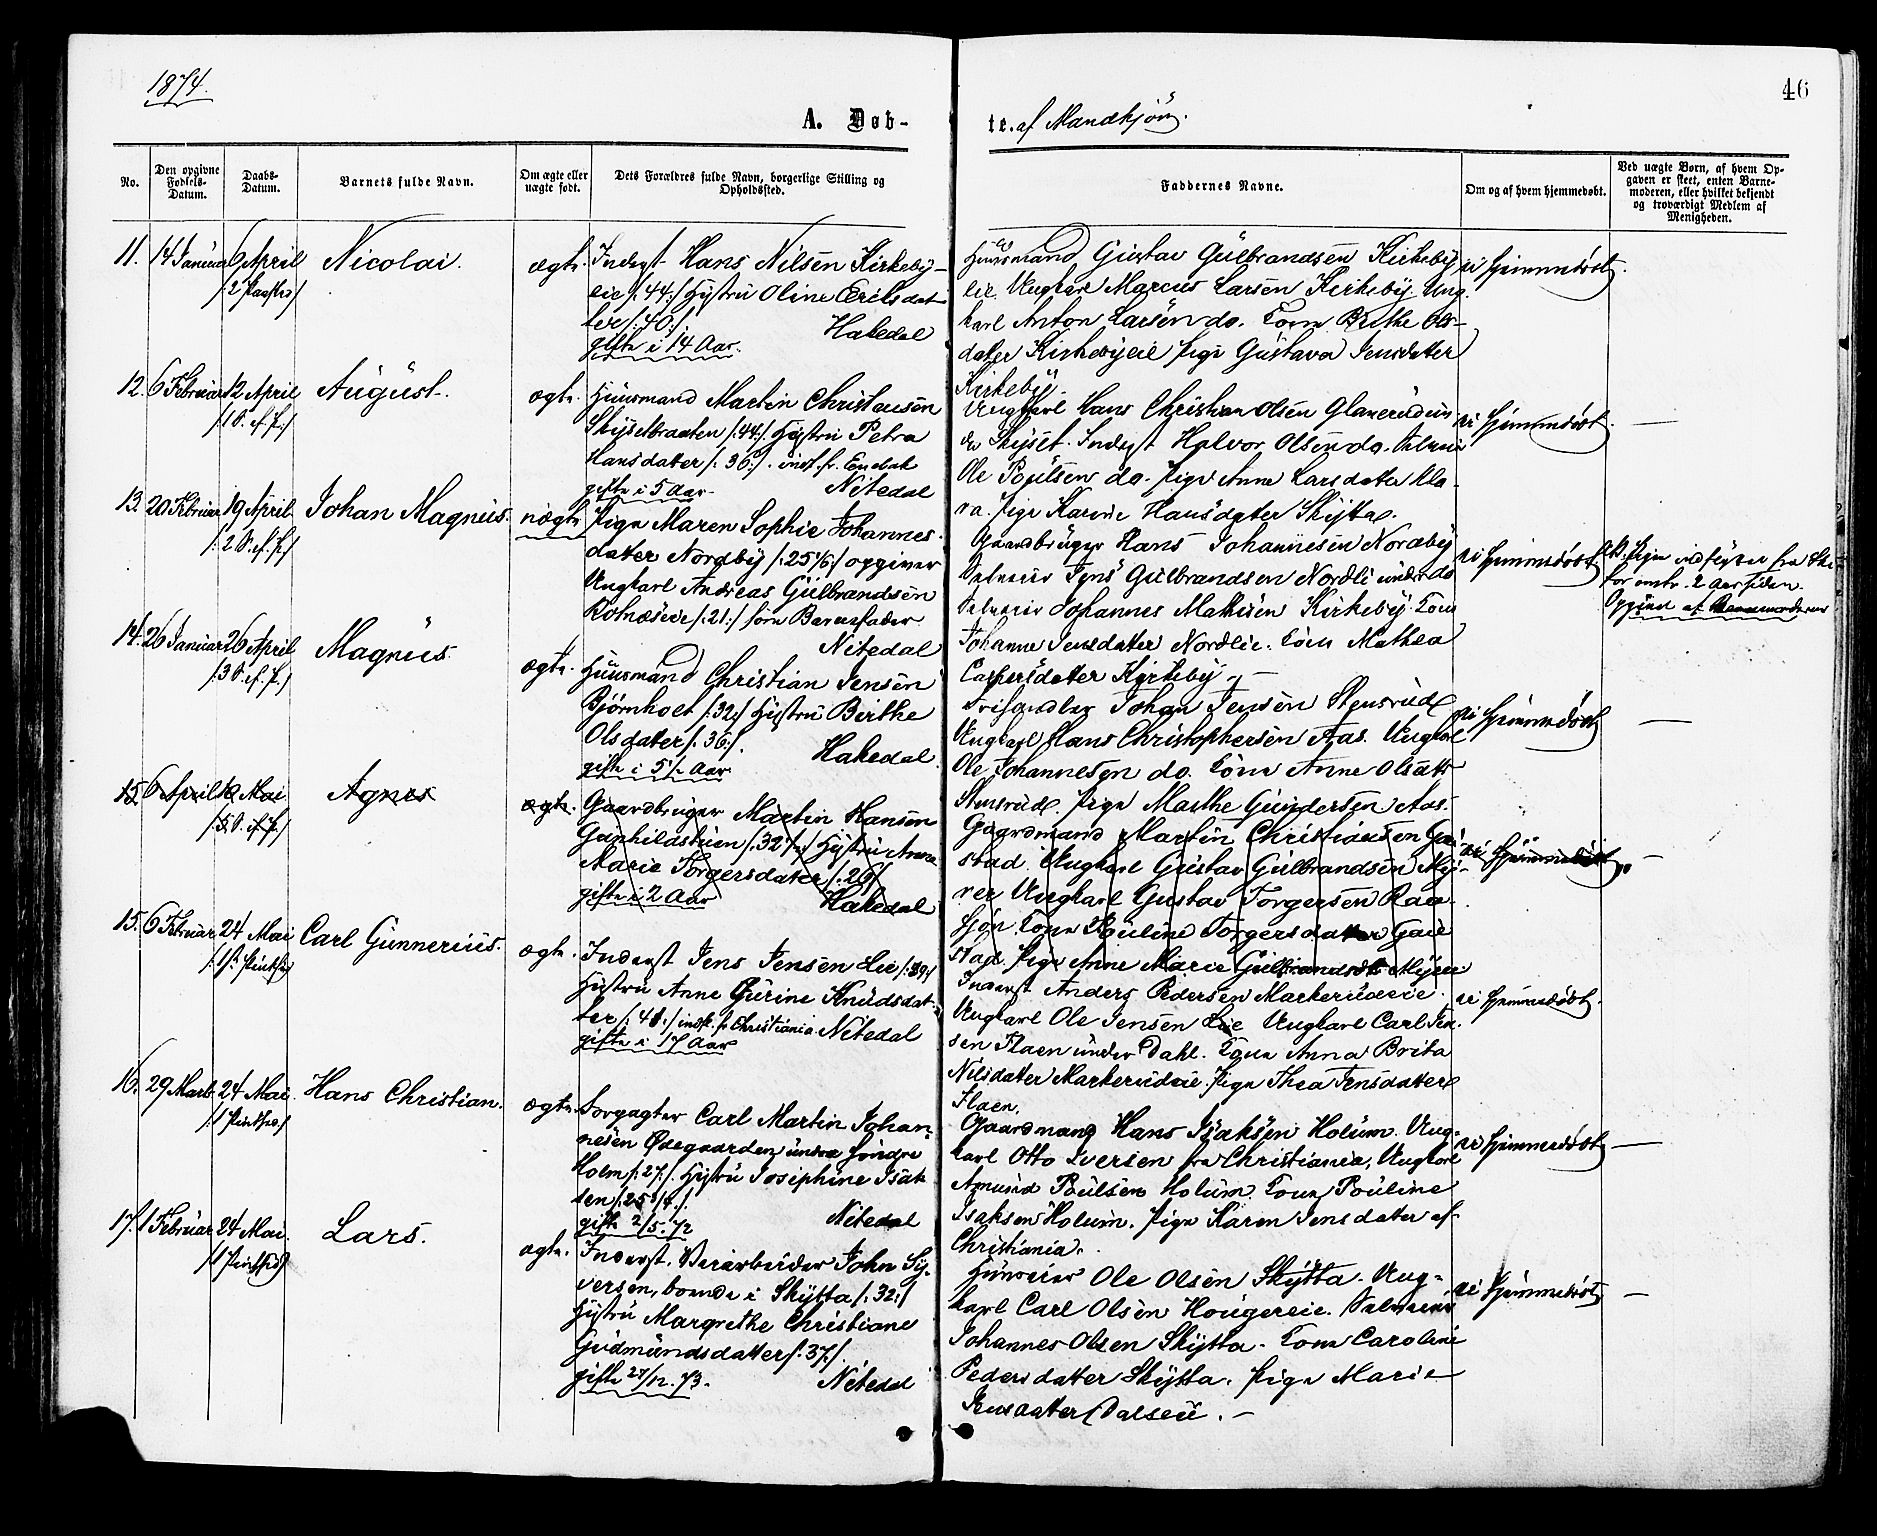 1874.
46
A. Døb-
te. af Mandkjön.
No.
Den opgivne Fødsels-Datum.
Daabs-Datum.
Barnets fulde Navn.
Om ægte eller uægte født.
Dets Forældres fulde Navn, borgerlige Stilling og Opholdssted.
Faddernes Navne.
Om og af hvem hjemmedøbt.
Ved uægte Børn, af hvem Op-
gaven er skeet, enten Barne-
moderen, eller hvilket bekjendt
og troværdigt Medlem af
Menigheden.
11. 14 Januar 6 April Nicolai. ægte.
/: 2 Paaske /
Inderst Hans Nilsen Kirkeby-
eie /: 44 :/ Hustru Oline Eriksdat
ter /: 40 :/
Hakedal
gifte i 14 Aar.
Huusmand Gustav Gulbrandsen Kirkeby
eie. Ungkarl Marcus Larsen Kirkeby. Ung-
karl Anton Larsen do. Kone Berthe Ols-
datter Kirkebyeie Pige Gustava Jensdatter
Kirkeby.
ei hjemmedøbt.
12. 6 Februar 12 April August. ægte.
/: 1 S. ef. P. /
Huusmand Martin Christiansen
Skysetbraaten /: 44 :/ Hustru Petra
Hansdatter /: 36 :/. indf. fr. Enebak
gifte i 5 Aar.
Nitedal
Ungkarl Hans Christian Olsen Glanerudun
der Skyset. Inderst Halvor Olsen do.
Ole Poulsen do. Pige Anne Larsdatter Kla-
ra. Pige Karine Hansdater Skytta.
ei hjemmedøbt. —
13. 20 Februar 19 April Johan Magnus. uægte
/: 2 S. ef. P. /
Pige Maren Sophie Johannes-
datter Nordby /: 25 :/ opgiver
Ungkarl Andreas Gulbrandsen
Rotnæseie /: 21 :/ som Barnefader
Nitedal
Gaardbruger Hans Johannesen Nordby
Jens Gulbrandsen Nordli under do
Johannes Mathisen Kirkeby. Kone
Johanne Jensdatter Nordlie. Kone Mathea
Caspersdatter Kirkeby. —
ei hjemmedøbt.
Pigen indflyttet fra
for omtr. 2 Aar siden.
Opgivet af Barnemoderen
14. 26 Januar 26 April Magnus. ægte.
/: 3 S. ef. P. /
Huusmand Christian Jensen
Bjørnholt /: 32 :/ Hustru Berthe
Olsdatter /: 36 :/.
Hakedal.
gifte i 5 ½ Aar
Johan Jensen Stensrud
Ungkarl Hans Christophersen Aas. Ungkarl
Ole Johannesen do. Kone Anne Olsdtr
Stensrud. Pige Marthe Gundersen Aas.
ei hjemmedøbt —
15. 6 April 10 Mai Agnes ægte.
/: 5 S. ef. P. /
Gaardbruger Martin Hansen
Gunhildstuen /: 32 :/ Hustru Anne
Marie Torgersdatter /: 26 /
gifte i 2 Aar
Hakedal
Gaardmand Martin Christiansen Gau
stad. Ungkarl Gustav Gulbrandsen My-
rer Ungkarl Gustav Torgersen Raa-
sjøn. Kone Pouline Torgersdatter Gau
stad. Pige Anne Marie Gulbrandsdtr Myrer
ei hjemmedøbt. —
15. 6 Februar 24 Mai Carl Gunnerius. ægte.
/: 1ste Pintse /
Inderst Jens Jensen Lie /: 39 :/
Hustru Anne Gurine Knudsdat-
ter /: 40 :/ indfl. fr Christiania. Nitedal
gifte i 17 Aar
Inderst Anders Pedersen Markerudeie.
Ungkarl Ole Jensen Lie Ungkarl Carl Jen-
sen Flaen under Dahl. Kone Anna Brita
Nilsdatter Markerudeie. Pige Thea Jensdatter
Flaen.
ei hjemmedøbt.
16. 29 Marts 24 Mai. Hans Christian. ægte.
/: 1 Pintsed. /
Forpagter Carl Martin Johan-
nesen Ødegaarden under søndre
Holm /: 27 :/. Hustru Josephine Isak
sen /: 25 :/.
gifte 2/5. 72
Nitedal
Gaardmand Hans Isaksen Holum. Ung-
karl Otto Iversen fra Christiania, Ungkarl
Amund Poulsen Holum. Kone Pouline
Isaksen Holum. Pige Karen Jensdater af
Christiania.
ei hjemmedøbt —
17. 1 Februar 24 Mai. Lars. ægte.
/: 1 Pintsed /
Inderst. Veiarbeider John Sy-
versen, boende i Skytta /: 32 :/
Hustru Margrethe Christiane
Gudmundsdatter /: 37 :/.
gifte 27/12. 73.
Nitedal
Huuseier Ole Olsen Skytta. Ung-
karl Carl Olsen Hougereie.
Johannes Olsen Skytta. Kone Caroline
Pedersdatter Skytta. Pige Marie
Jensdatter Dalseie. —
ei hjemmedøbt —